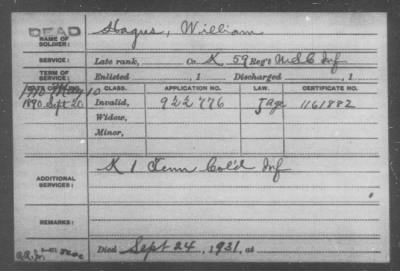 DEAD
NAME OF SOLDIER: Hagus, William
SERVICE: Late rank, Co. K, 59 Reg't U.S.C. Inf
TERM OF SERVICE: Enlisted , 1 Discharged , 1
CLASS. APPLICATION NO. LAW. CERTIFICATE NO.
1890 Sept 20 Invalid, 922776 J age 1161882
Widow,
Minor,
ADDITIONAL SERVICES: K 1 Tenn Col'd Inf
REMARKS:
Died Sept 24, 1921, at